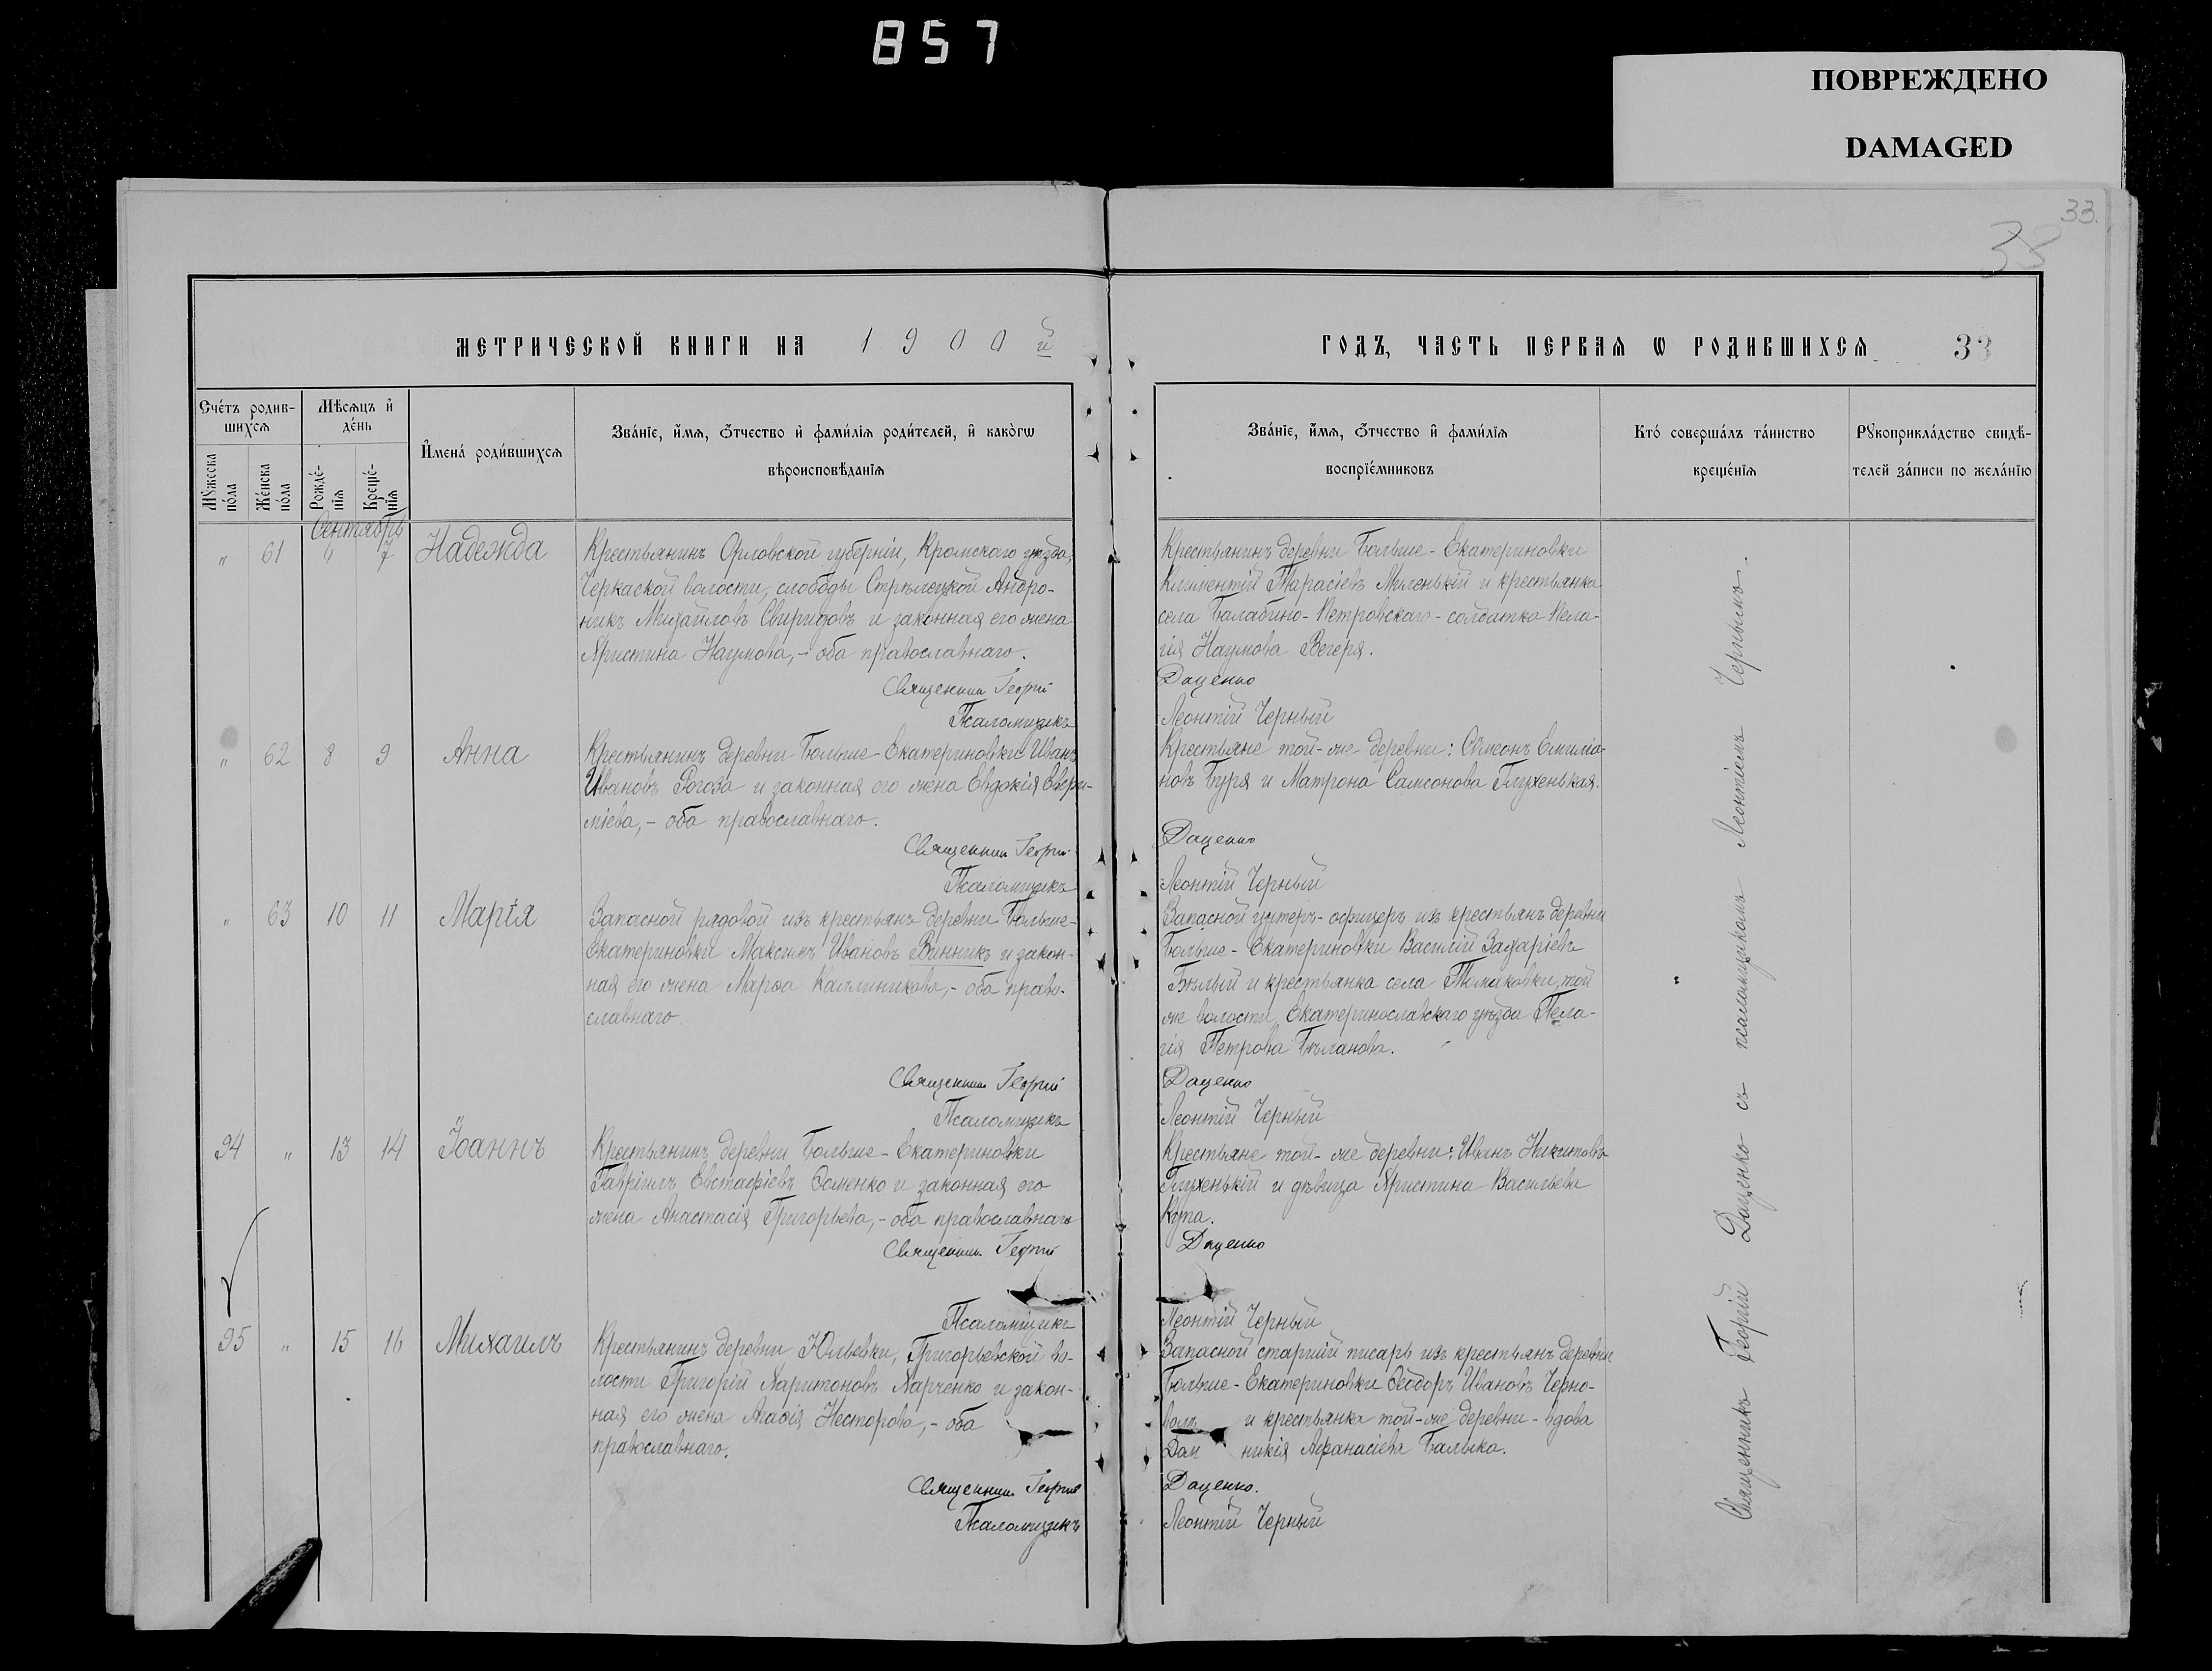 857
ПОВРЕЖДЕНО
DAMAGED
33.
33
МЕТРИЧЕСКОЙ КНИГИ НА 1900й
ГОДЪ, ЧАСТЬ ПЕРВАЯ Ѡ РОДИВШИХСЯ 33
Счéтъ родив-
шихсѧ
Мꙋ́жеска
пóла
Жéнска
пóла
Мѣ́сѧцъ и҆
дéнь
Рождé-
нїѧ
Крещé-
нїѧ
И҆мена́ роди́вшихсѧ
Зва́нїе, и҆́мѧ, ѻ҆́тчество и҆ фами́лїѧ роди́телей, и҆ како́гѡ
вѣроисповѣ́данїѧ
Зва́нїе, и҆́мѧ, ѻ҆́тчество и҆ фами́лїѧ
воспрїе́мниковъ
Кто́ соверша́лъ та́инство
креще́нїѧ
Рꙋкоприкла́дство свидѣ́-
телей за́писи по жела́нїю
Сентябрь
„ 61 7 Надежда
Крестьянинъ Орловской губерніи, Кромскаго уѣзда,
Черкаской волости, слободы Стрѣлецкой Андро-
никъ Михайловъ Свиридовъ и законная его жена
Христина Наумова, - оба православнаго.
Священник Георгій
Псаломщикъ
Крестьянинъ деревни Больше-Екатериновки
Климентій Тарасіевъ Миленькій и крестьянка
села Балабино-Петровскаго - солдатка Пела-
гія Наумова Вегеря.
Даценко
Леонтій Черный
„ 62 8 9 Анна
Крестьянинъ деревни Больше-Екатериновки Иванъ
Ивановъ Рогоза и законная его жена Евдокія
міева, - оба православнаго.
Священник Георгій
Псаломщикъ
Крестьяне той-же деревни: Сѵмеонъ Емиліа-
новъ Буря и Матрона Самсонова Глухенькая.
Даценко
Леонтій Черный
„ 63 10 11 Марія
Запасной рядовой изъ крестьянъ деревни Больше-
Екатериновки Максимъ Ивановъ Винникъ и закон-
ная его жена Марѳа Каллиникова, - оба право-
славнаго
Священник Георгій
Псаломщикъ
Запасной унтеръ-офицеръ изъ крестьянъ деревни
Больше-Екатериновки Василій Захаріевъ
Бѣлый и крестьянка села Томаковки, той
же волости, Екатеринославскаго уѣзда Пела-
гія Петрова Бѣланова.
Даценко
Леонтій Черный
94 „ 13 14 Іоаннъ
Крестьянинъ деревни Больше-Екатериновки
Гавріилъ Евстафіевъ Ѳоменко и законная его
жена Анастасія Григорьева, - оба православнаго
Священник Георгій
Псаломщикъ
Крестьяне той-же деревни: Иванъ Никитовъ
Глухенькій и дѣвица Христина Васильева
Купа.
Даценко
Леонтій Черный
95 „ 15 16 Михаилъ
Крестьянинъ деревни Юльевки, Григорьевской во-
лости Григорій Харитоновъ Харченко и закон-
ная его жена Агаѳія Несторова, - оба
православнаго.
Священник Георгій
Псаломщикъ
Запасной старшій писарь изъ крестьянъ деревни
Больше-Екатериновки Ѳеодоръ Ивановъ Черно-
волъ и крестьянка той-же деревни - вдова
Дом никія Аѳанасіева Балыка.
Даценко.
Леонтій Черный
Священникъ Георгій Даценко съ псаломщикомъ Леонтіемъ Чернымъ.